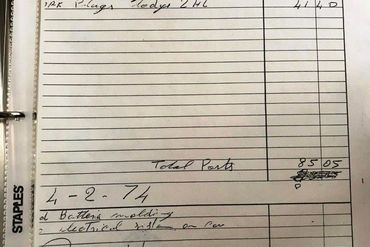 Plugs
41 40
Total Parts 85 05
4-2-74
Battery molding
electrical system on car
STAPLES